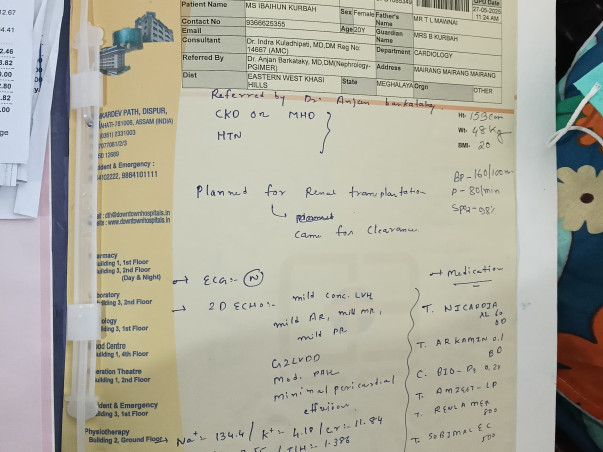 12.67
34.41
2.46
3.82
0.00
2.80
.82
.00
ge
Patient Name MS IBAIHUN KURBAH Sex Female Father's Name MR T L MAWNAI OPD Date 27-05-2025 11:24 AM
Contact No 9366625355 Age 20Y Guardian Name MRS B KURBAH
Email
Consultant Dr. Indra Kuladhipati, MD,DM Reg No: 14667 (AMC) Department CARDIOLOGY
Referred By Dr. Anjan Barkataky, MD,DM(Nephrology-PGIMER) Address MAIRANG MAIRANG MAIRANG
Dist EASTERN WEST KHASI HILLS State MEGHALAYA Orgn OTHER
Referred by Dr. Anjan barkataky
CKD on MHD
HTN
Ht- 153cm
Wt- 48 Kg
BMI- 20
BP - 160/100
P - 80/min
SpO2 - 98%
Planned for Renal transplantation
Came for Clearance
KARDEV PATH, DISPUR,
HATI-781006, ASSAM (INDIA)
0361) 2331003
7077081/2/3
Accident & Emergency :
4102222, 9864101111
: dth@downtownhospitals.in
: www.downtownhospitals.in
rmacy
Building 1, 1st Floor
Building 3, 2nd Floor
(Day & Night)
boratory
Building 3, 2nd Floor
ology
Building 3, 1st Floor
Food Centre
Building 1, 4th Floor
Operation Theatre
Building 1, 2nd Floor
Accident & Emergency
Building 3, 1st Floor
Physiotherapy
Building 2, Ground Floor
→ ECG:- N
→ 2D ECHO:- mild conc. LVH
mild AR, mild MR,
mild PR
G2LVDD
Mod. PAH
minimal pericardial
effusion
Na+:- 134.4 / K+:- 4.18 / Cr:- 11.84
TSH:- 1.386
→ Medication
T. NICARDIA
T. ARKAMIN 0.1
BD
C. BIO-D3 0.25
T. AMZEST-LP
T. RENLAMER
800
T. SOBIMAL EC
500